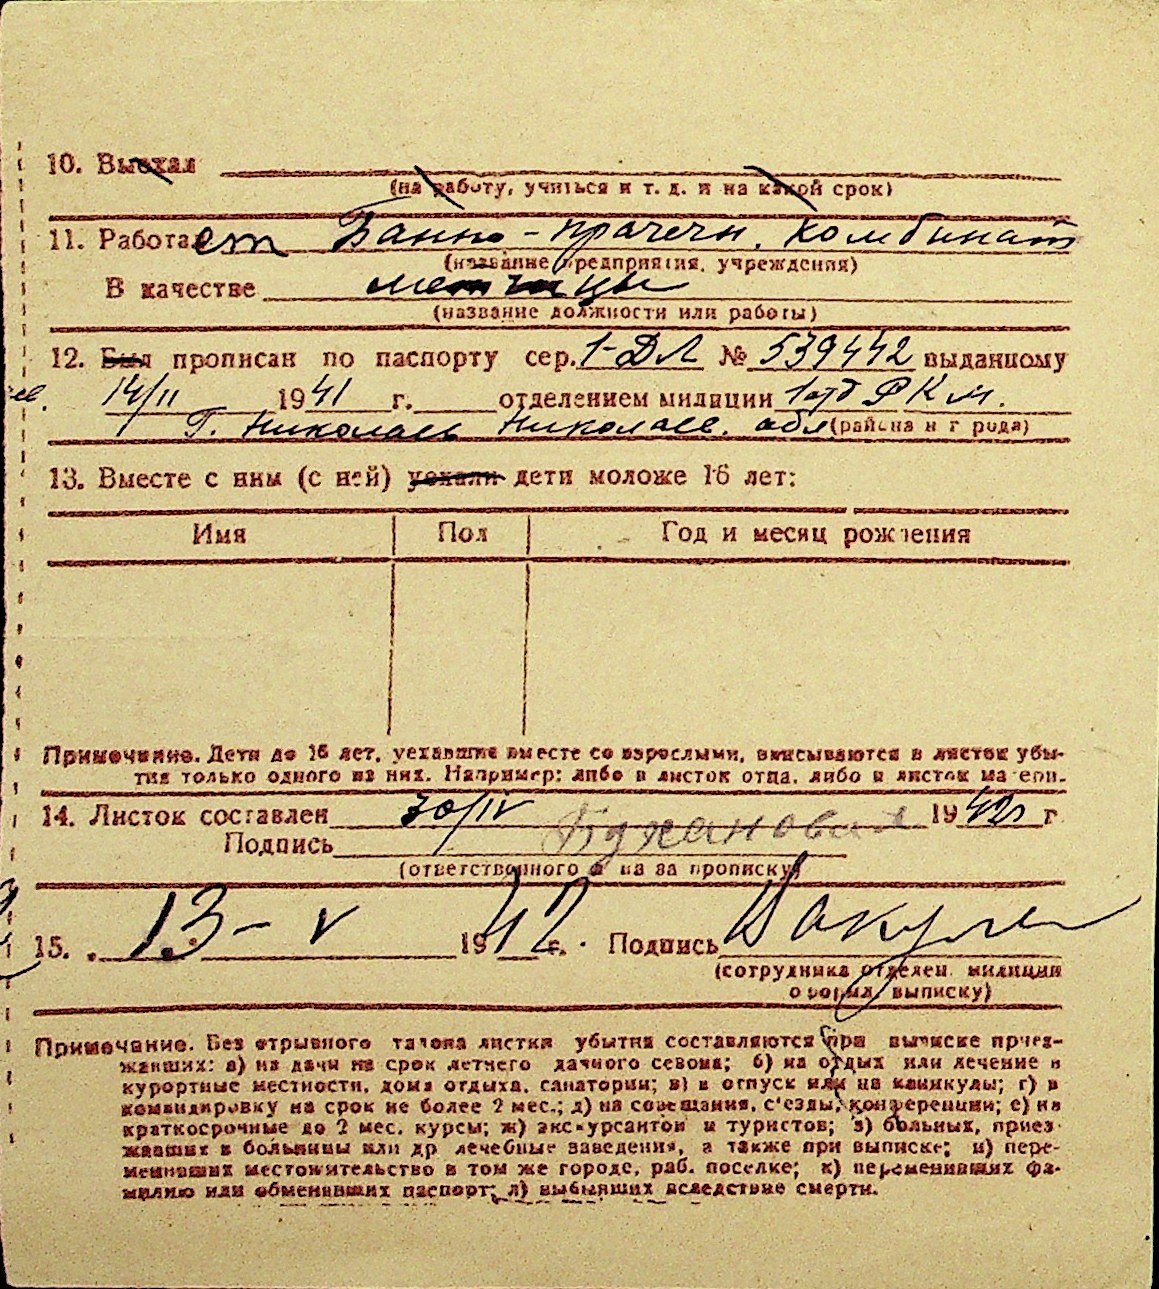 10. Выехал
(на работу, учиться и т. д. и на какой срок)
11. Работает Банно-прачечн. комбинат
(название предприятия, учреждения)
В качестве
(название должности или работы)
12. Был прописан по паспорту сер. 1-ДЛ № 539442 выданному
14/II 1941 г. отделением милиции 1 отд РКМ.
г. Николаев Николаев. обл (района и города)
13. Вместе с ним (с ней) уехали дети моложе 16 лет:
Имя Пол Год и месяц рождения
Примечание. Дети до 16 лет, уехавшие вместе со взрослыми, вписываются в листок убы-
тия только одного из них. Например: либо в листок отца, либо в листок матери.
14. Листок составлен 30/IV 1942 г
Подпись Буханова
(ответственного за прописку)
15. 13-V 1942 г. Подпись
(сотрудника отделен. милиции
оформ. выписку)
Примечание. Без отрывного талона листки убытия составляются при выписке приез-
жавших: а) на дачи на срок летнего дачного сезона; б) на отдых или лечение в
курортные местности, дома отдыха, санатории; в) в отпуск или на каникулы; г) в
командировку на срок не более 2 мес.; д) на совещания, с'езды, конференции; е) на
краткосрочные до 2 мес. курсы; ж) экскурсантов и туристов; з) больных, приез-
жавших в больницы или др лечебные заведения, а также при выписке; и) пере-
менивших местожительство в том же городе, раб. поселке; к) переменивших фа-
милию или обменявших паспорт; л) выбывших вследствие смерти.